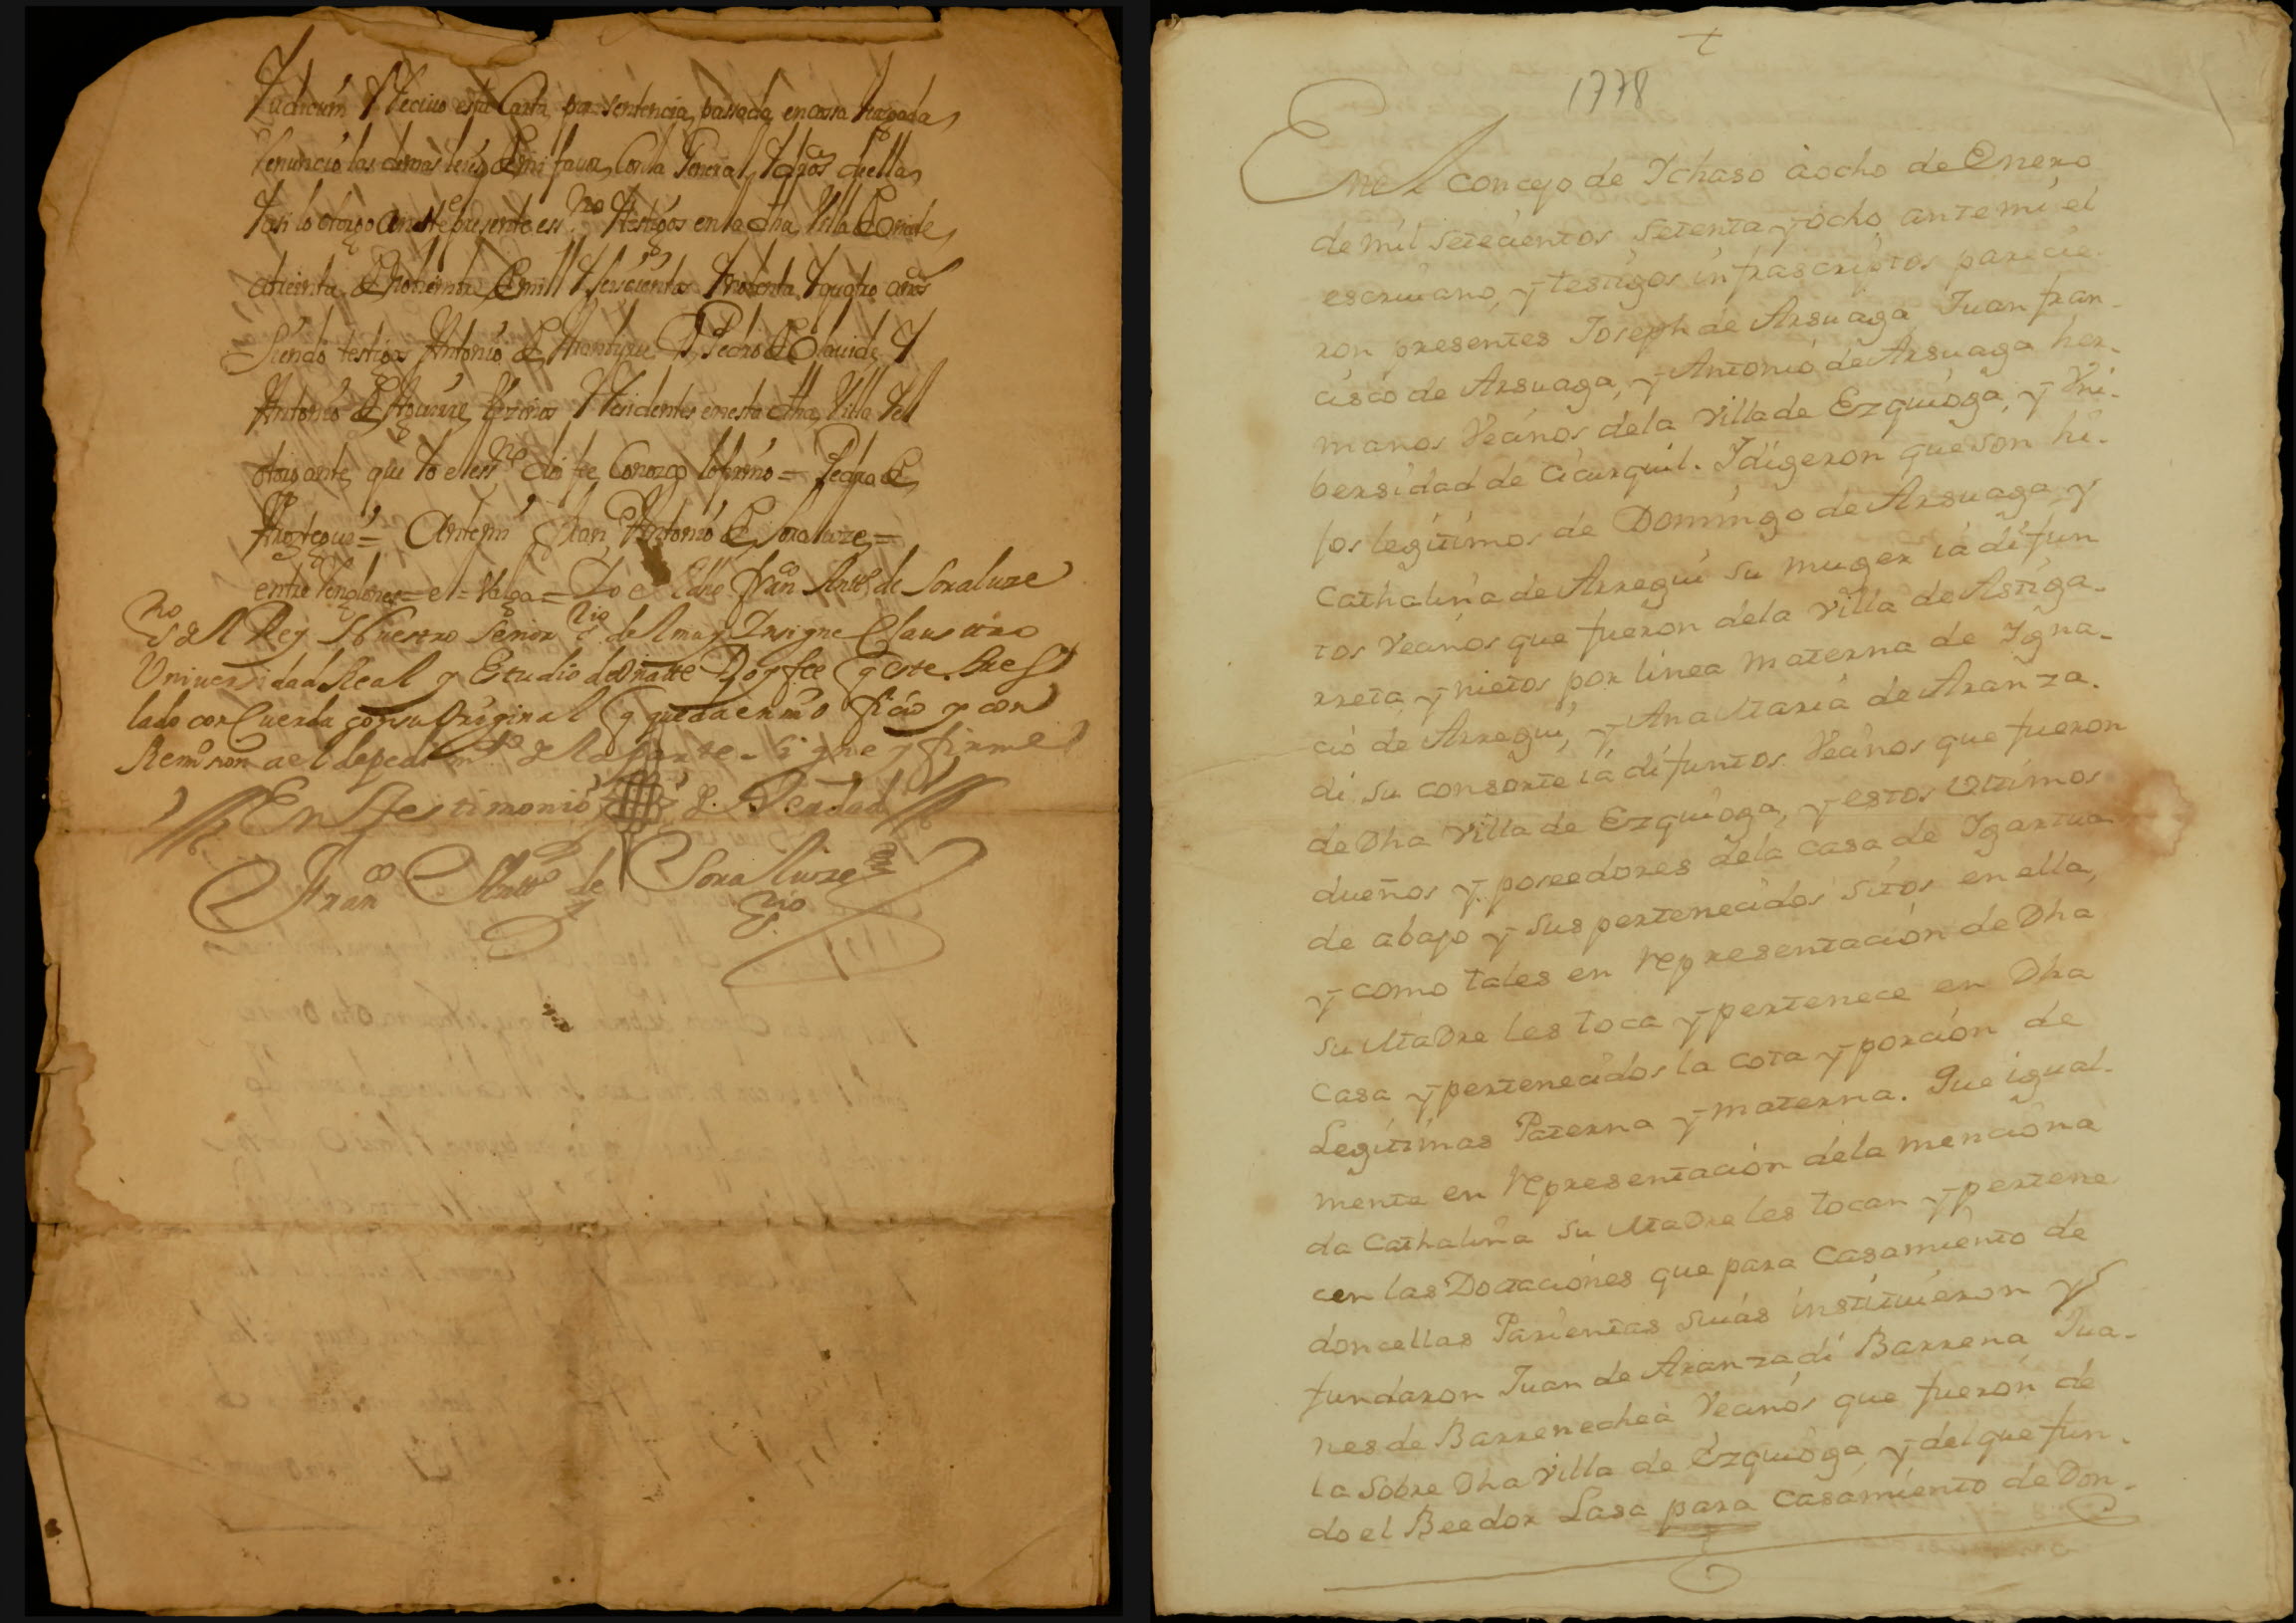 Judicium Y Recivio esta Carta por sentencia passada en cossa Juzgada
renuncio las demas leyes de mi favor Con la General Y dros della
Y assi lo otorgo ante el presente essno Y testigos en la dha Villa de Oñate
a treinta de Nobiembre de mill Y seiscientos Y nobenta Y quatro años
Siendo testigos Antonio de Pedro de Olauide Y
Antonio de Aguirre Vezinos Y Residentes en esta dha Villa Y el
otorgante que Yo el essno doi fee Conozco lo firmo = Pedro de
= Antemi Fran Antonio de Soraluze =
entre Renglones = e = Valga = Yo el dho Franco Antto de Soraluze
sno del Rey Nuestro Señor srio del muy Insigne Claustro
Universidad Real y Estudio de Onatte Doy fee q este tras
lado con Cuerda con su Original q queda en mio ficio y con
Remision a el de pedimto de la parte Signe y firme
En Testimonio de Verdad
Franco Antto de Soraluze
srio
†
1778
En el concejo de Ichaso à ocho de Enero
de mil setecientos setenta y ocho ante mi el
escrivano, y testigos infrascriptos parecie-
ron presentes Joseph de Arsuaga Juan fran-
cisco de Arsuaga, y Antonio de Arsuaga her-
manos Vecinos dela Villa de Ezquioga, y Vni-
bersidad de Cicurquil. I digeron que son hi-
jos legitimos de Domingo de Arsuaga, y
Cathalina de Arregui su muger ia difun
tos Vecinos que fueron dela Villa de Astiga-
rreta, y nietos por linea materna de Igna-
cio de Arregui, y Ana Maria de Aranza-
di su consorte ia difuntos Vecinos que fueron
de Dha Villa de Ezquioga, y estos Vltimos
dueños y poseedores dela casa de Igartua
de abajo y sus pertenecidos sitos en ella,
y como tales en representacion de Dha
su Madre les toca y pertenece en Dha
Casa y pertenecidos la cota y porcion de
Legitimas Paterna y materna. Que igual-
mente en representacion dela menciona
da Cathalina su Madre les tocan y pertene
cen las Dotaciones que para Casamiento de
doncellas Parientas suias instituieron y
fundaron Juan de Aranzadi Barrena Jua-
nes de Barrenechea Vecinos que fueron de
la sobre Dha Villa de Ezquioga, y del que fun-
do el Beedor Lasa para casamiento de Don-